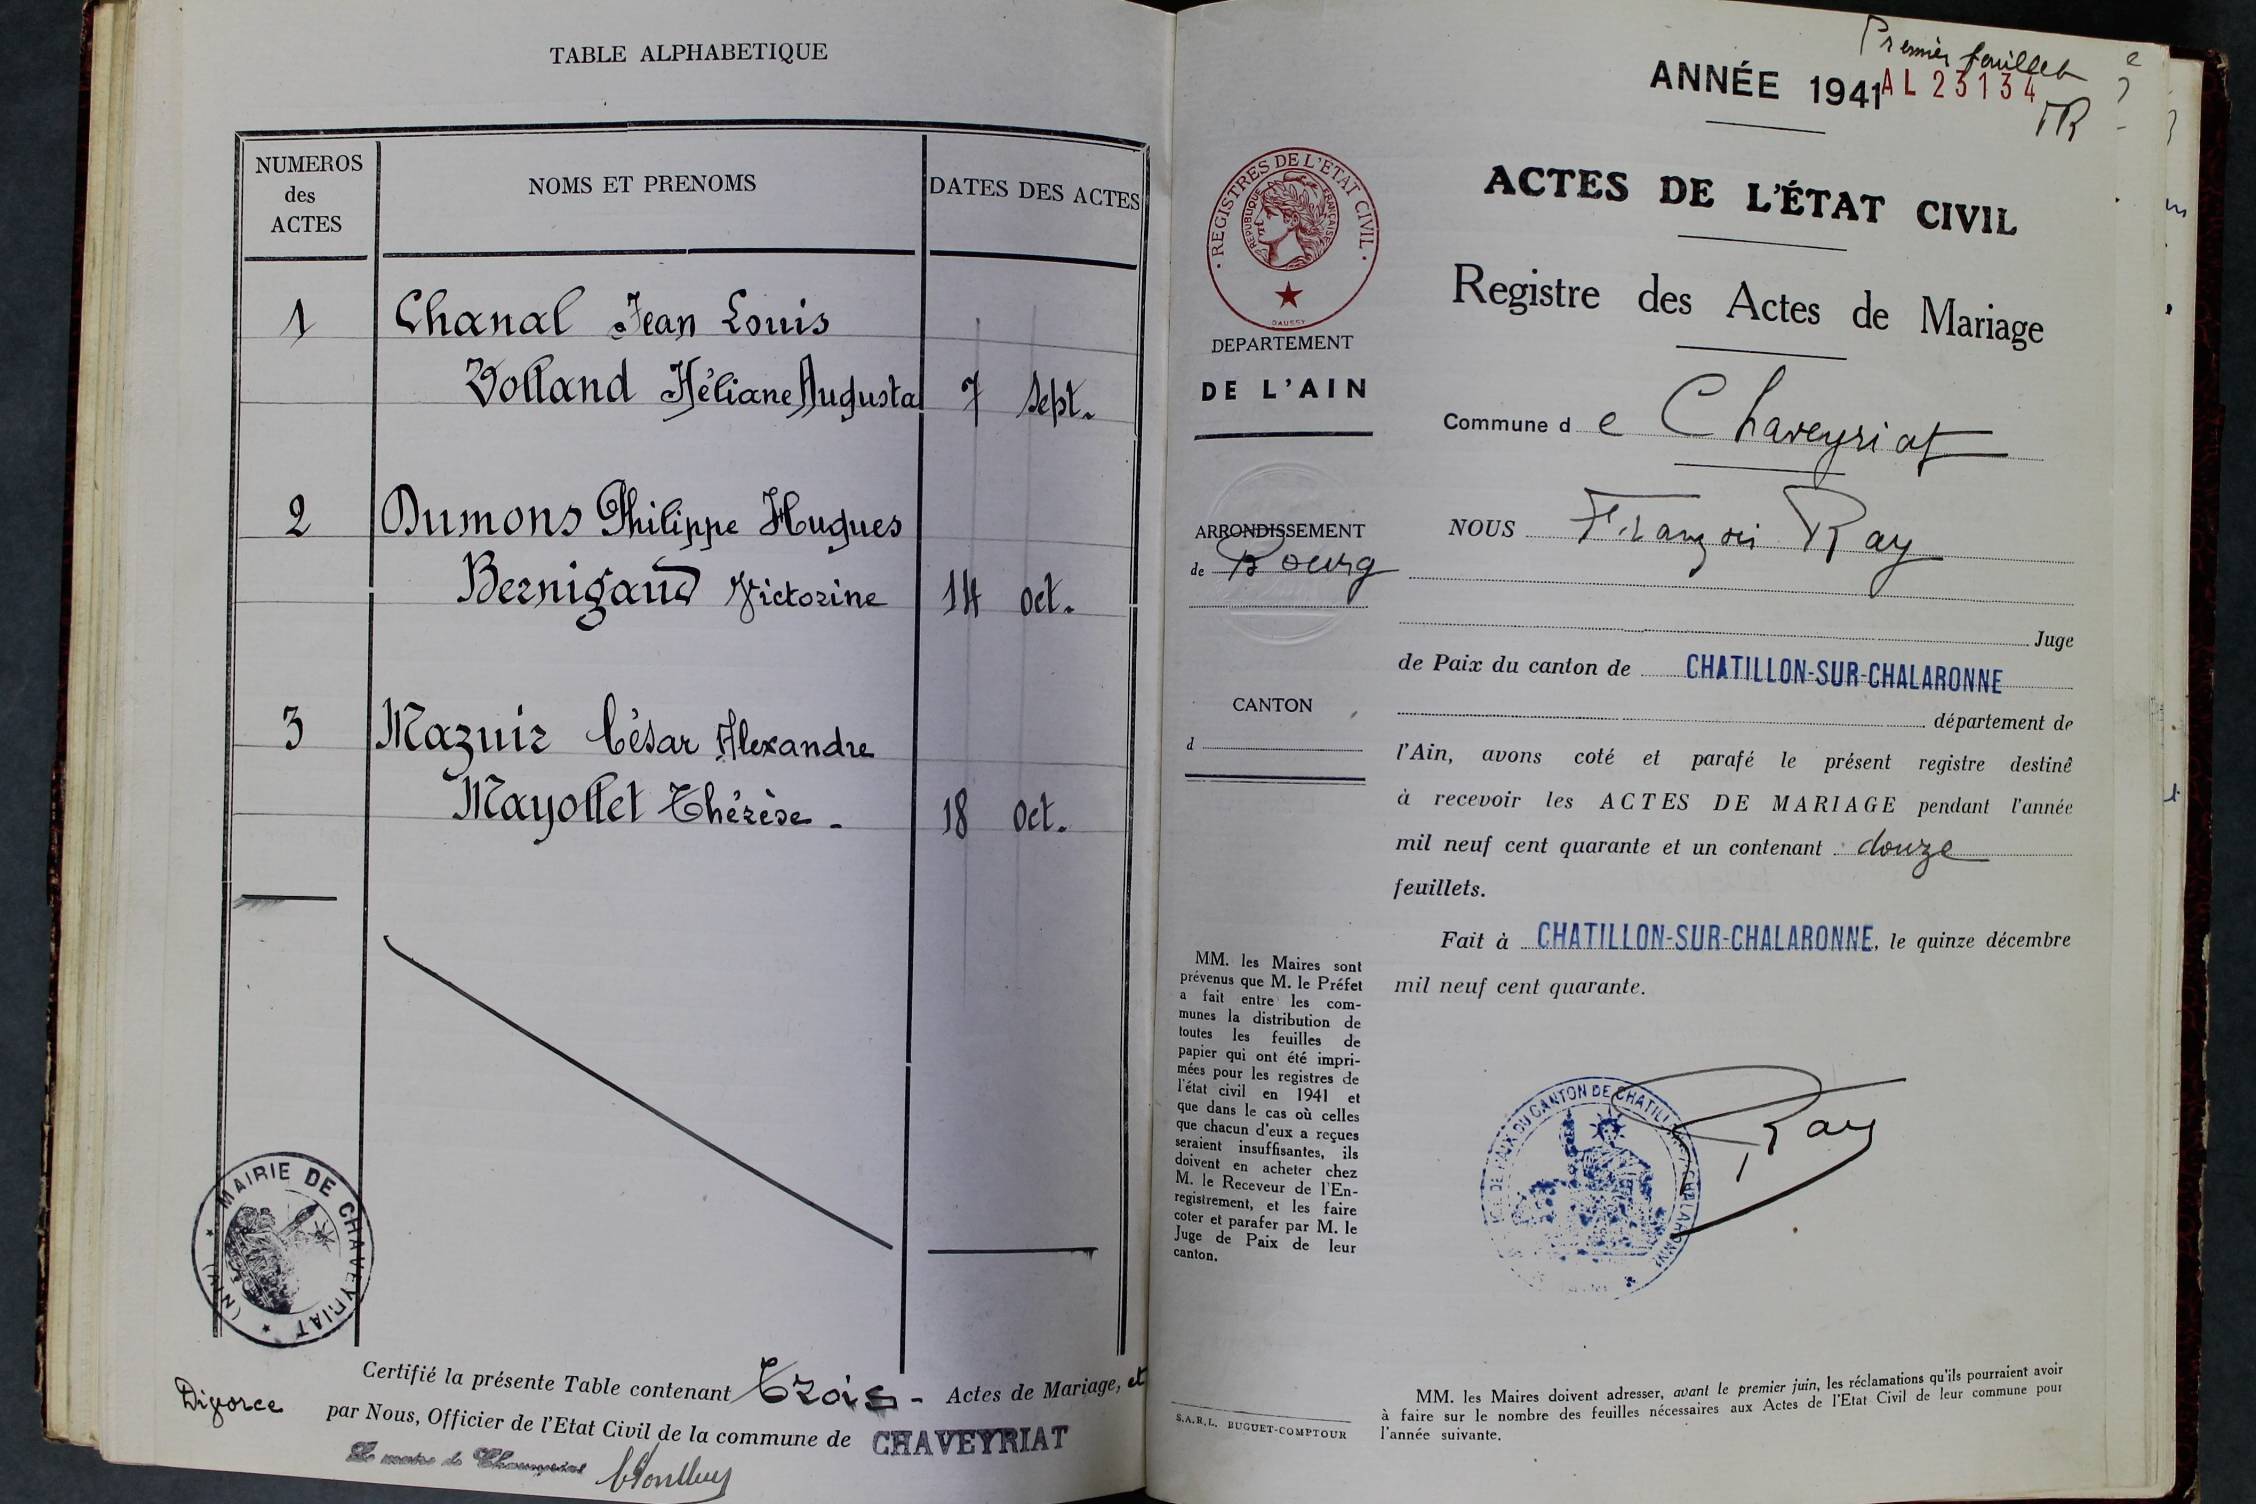 TABLE ALPHABETIQUE
NUMEROS
des
ACTES
NOMS ET PRENOMS
DATES DES ACTES
1 Chanal Jean Louis
Volland Héliane Augusta 7 Sept.
2 Dumons Philippe Hugues
Bernigaud Victorine 14 oct.
3 Mazuir César Alexandre
Mayollet Thérèse - 18 oct.
MAIRIE DE CHAVEYRIAT (AIN)
Certifié la présente Table contenant Trois - Actes de Mariage, et
Divorce par Nous, Officier de l'Etat Civil de la commune de CHAVEYRIAT
Le maire de Chaveyriat
Premier feuillet
ANNÉE 1941 AL 23134
TR
REGISTRES DE L'ETAT CIVIL
REPUBLIQUE FRANÇAISE
DAUSSY
DEPARTEMENT
DE L'AIN
ARRONDISSEMENT
de Bourg
CANTON
d
MM. les Maires sont
prévenus que M. le Préfet
a fait entre les com-
munes la distribution de
toutes les feuilles de
papier qui ont été impri-
mées pour les registres de
l'état civil en 1941 et
que dans le cas où celles
que chacun d'eux a reçues
seraient insuffisantes, ils
doivent en acheter chez
M. le Receveur de l'En-
registrement, et les faire
coter et parafer par M. le
Juge de Paix de leur
canton.
S.A.R.L. BUGUET-COMPTOUR
ACTES DE L'ÉTAT CIVIL
Registre des Actes de Mariage
Commune de Chaveyriat
NOUS François Ray
Juge
de Paix du canton de CHATILLON-SUR-CHALARONNE
département de
l'Ain, avons coté et parafé le présent registre destiné
à recevoir les ACTES DE MARIAGE pendant l'année
mil neuf cent quarante et un contenant douze
feuillets.
Fait à CHATILLON-SUR-CHALARONNE, le quinze décembre
mil neuf cent quarante.
DE PAIX DU CANTON DE CHATILLON-SUR-CHALARONNE
Ray
MM. les Maires doivent adresser, avant le premier juin, les réclamations qu'ils pourraient avoir
à faire sur le nombre des feuilles nécessaires aux Actes de l'Etat Civil de leur commune pour
l'année suivante.